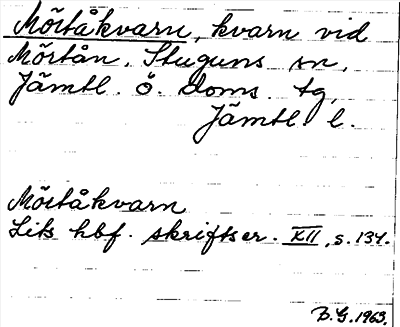 Mörtåkvarn, kvarn vid
Mörtån, Stuguns sn,
Jämtl. ö. doms. tg,
Jämtl. l.
Mörtåkvarn
Lits hbf. skriftser. XII, s. 134.
B.G. 1963.